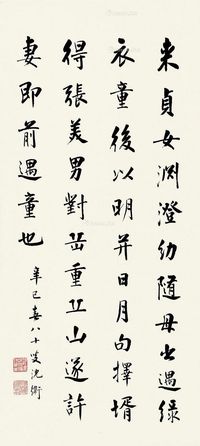 来貞女渊澄幼隨母出遇绿
衣童後以明并日月句擇壻
得張美男對岳重丘山遂許
妻即前遇童也
辛巳春八十叟沈衛